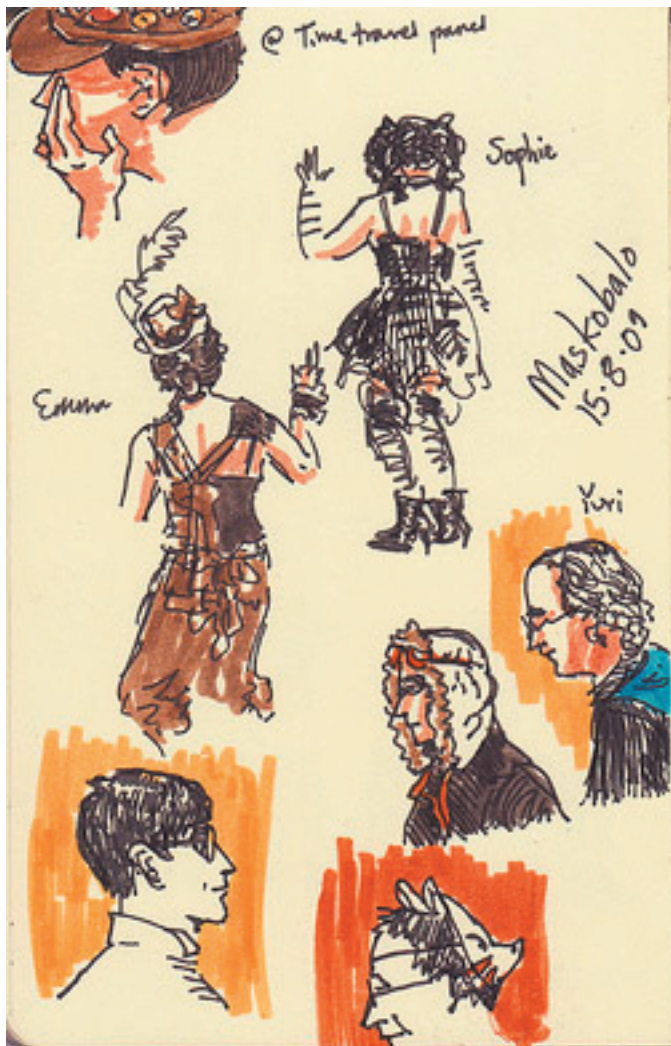 @ Time travel panel
Sophie
Maskobalo
15.8.09
Emma
Yuri